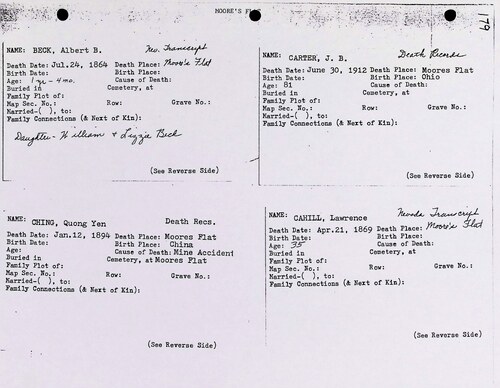 MOORE'S
179
NAME: BECK, Albert B. Nev. Transcript
Death Date: Jul.24, 1864 Death Place: Moore's Flat
Birth Date: Birth Place:
Age: 1 yr - 4 mo. Cause of Death:
Buried in Cemetery, at
Family Plot of:
Map Sec. No.: Row: Grave No.:
Married-( ), to:
Family Connections (& Next of Kin):
Daughter- William & Lizza Beck
(See Reverse Side)
NAME: CARTER, J. B. Death Records
Death Date: June 30, 1912 Death Place: Moores Flat
Birth Date: Birth Place: Ohio
Age: 81 Cause of Death:
Buried in Cemetery, at
Family Plot of:
Map Sec. No.: Row: Grave No.:
Married-( ), to:
Family Connections (& Next of Kin):
(See Reverse Side)
NAME: CHING, Quong Yen Death Recs.
Death Date: Jan.12, 1894 Death Place: Moores Flat
Birth Date: Birth Place: China
Age: Cause of Death: Mine Accident
Buried in Cemetery, at Moores Flat
Family Plot of:
Map Sec. No.: Row: Grave No.:
Married-( ), to:
Family Connections (& Next of Kin):
(See Reverse Side)
NAME: CAHILL, Lawrence Nevada Transcript
Death Date: Apr.21, 1869 Death Place: Moore's Flat
Birth Date: Birth Place:
Age: 35 Cause of Death:
Buried in Cemetery, at
Family Plot of:
Map Sec. No.: Row: Grave No.:
Married-( ), to:
Family Connections (& Next of Kin):
(See Reverse Side)